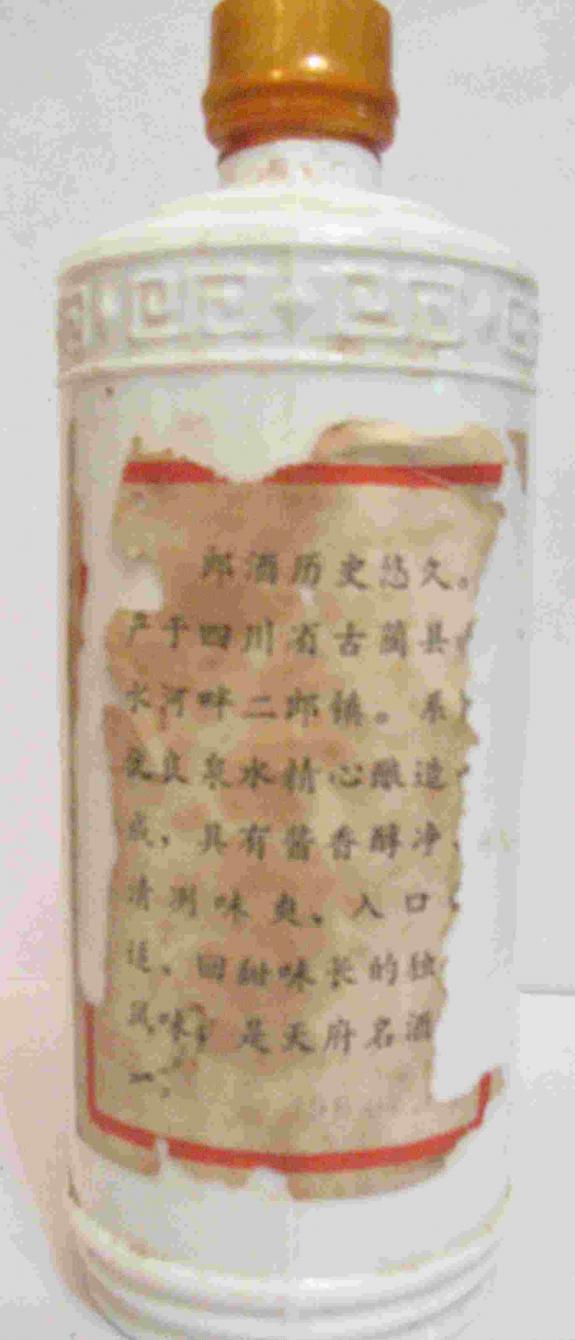 郎酒历史悠久。
产于四川省古蔺县
水河畔二郎镇。系
优良泉水精心酿造
成，具有酱香醇净、
清冽味爽、入口
回甜味长的独
风味，是天府名酒
一，